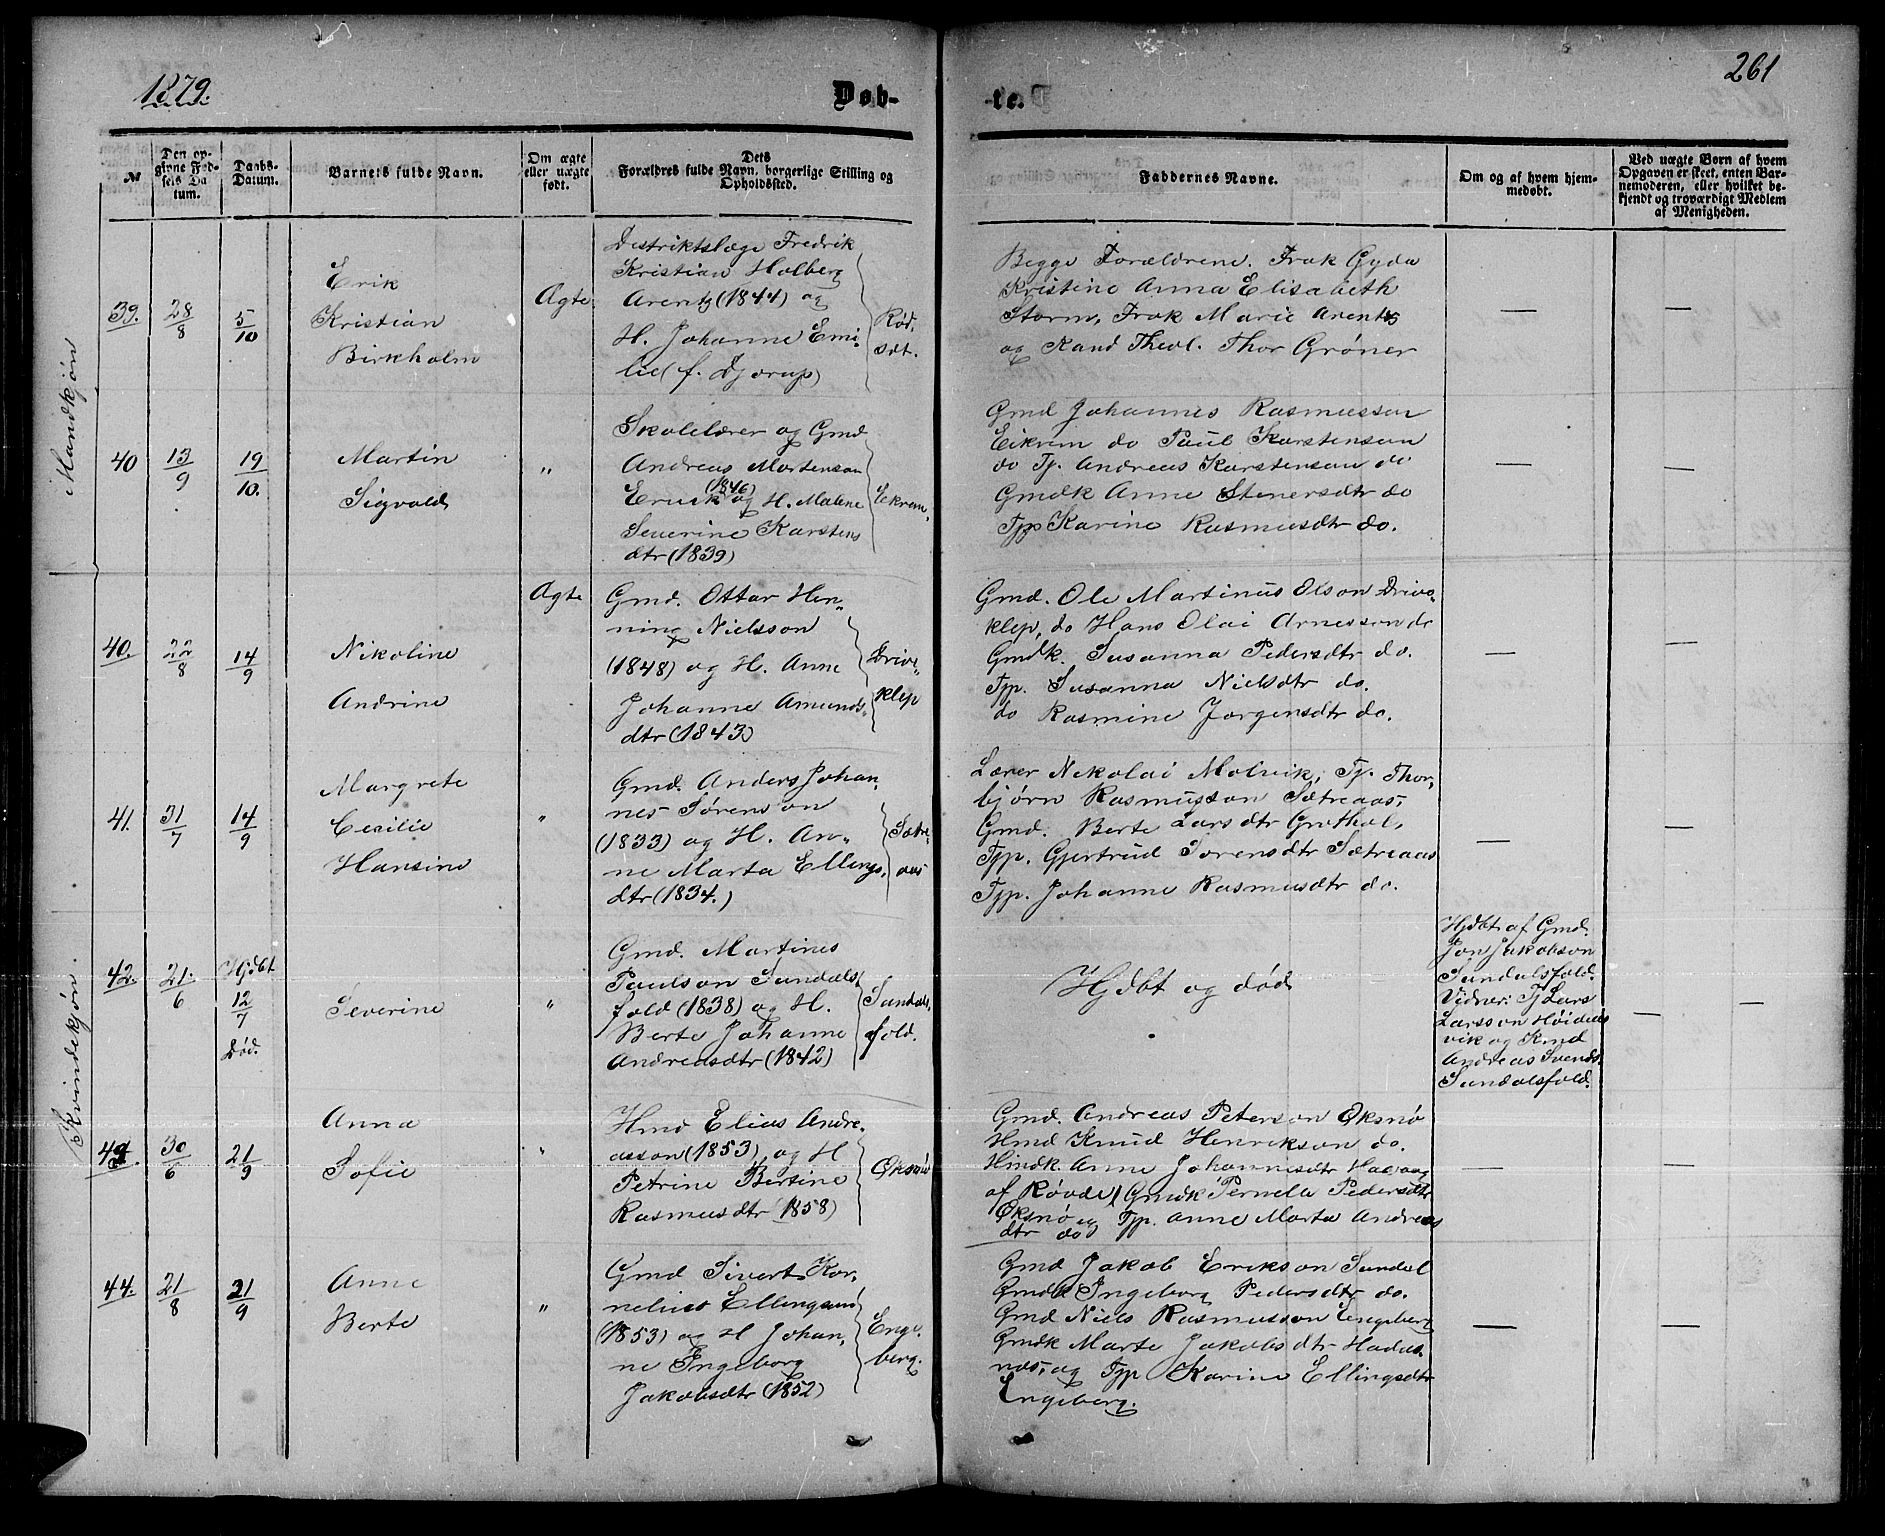 1879.
Døb-
te.
261
№
Den op-
givne Fød-
sels Da
tum.
Daabs-
Datum.
Barnets fulde Navn.
Om ægte
eller uægte
født.
Dets
Forældres fulde Navn, borgerlige Stilling og
Opholdssted.
Faddernes Navne.
Om og af hvem hjem-
medøbt.
Ved uægte Børn af hvem
Opgaven er skeet, enten Bar-
nemoderen, eller hvilket be-
kjendt og troværdigt Medlem
af Menigheden.
Mandkjøn
39.
28/8
5/10
Erik
Kristian
Birkholm
Ægte
Distriktslæge Fredrik
Kristian Holberg
Arentz (1844) og
H. Johanne Emi-
lie (f. Djørup)
Rød.
sæt.
Begge Forældrene. Frøk Gyda
Kristine Anna Elisabeth
Storm, Frøk Marie Arentz
og Kand Theol. Thor Grøner
—
—
40
13/9
19/10.
Martin
Sigvald
"
Skolelærer og Gmd
Andreas Mortenson
(1846)
og H. Malene
Severine Karstens
dtr (1839)
Ekrem.
Gmd Johannes Rasmusson
Eikrem do Paul Karstenson
do Tj. Andreas Karstenson do
Gmdk Anne Stenersdtr do
Tjp Karine Rasmusdtr do.
—
—
Kvindekjøn.
40.
22/8
14/9
Nikoline
Andrine
Ægte
Gmd. Ottar Hen-
ning Nielsson
(1848) og H. Anne
Johanne Amunds-
dtr (1843)
Drive-
klep
Gmd. Ole Martinus Olson Drive-
klep, do Hans Olai Arnesson do
Gmdk. Susanna Pedersdtr do.
Tjp. Susanna Nielsdtr do.
do Rasmine Jørgensdtr do.
—
—
41.
31/7
14/9
Margrete
Cecilie
Hansine
"
Gmd. Anders Johan
nes Sørenson
(1833) og H. An-
ne Marta Ellings-
dtr (1834.)
Sætre-
aas
Lærer Nikolai Molvik, Tj. Thor-
bjørn Rasmusson Sætreaas,
Gmd. Berte Larsdtr Grothol,
Tjp. Gjertrud Sørensdtr Sætreaas
Tjp. Johanne Rasmusdtr do.
—
—
42.
21./6
Hjdbt
12/7
Død.
Severine
"
Gmd. Martines
Paulson Sundals
fold (1838) og H.
Berte Johanne
Andreasdtr (1842)
Sundals-
fold.
Hjdbt og død
Hjdbt af Gmd.
Jon Jakobson
Sundalsfold.
Vidner: Tj Lars
Larsson Høideds
vik og Kmd
Andreas Svends.
Sundalsfold.
—
—
43.
30/6
21/9
Anna
Sofie
"
Hmd Elias Andre-
asson (1853) og H
Petrine Bertine
Rasmusdtr 1858)
Øksnø
Gmd. Andreas Peterson Øksnø
Hmd Knud Henrikson do.
Hmdk. Anne Johannesdtr
af Røvde) Gmdk Pernele Pedersdtr
Øksnø og Tjp. Anne Marta Andreas
dtr do
—
—
44.
21/8
21/9
Anne
Berte
"
Gmd Sivert Kor-
nelius Ellingsøn
(1853) og H Johan-
ne Ingeborg
Jakobsdtr (1852)
Enge-
berg.
Gmd Jakob Erikson Sundal
Gmdk Ingeborg Pedersdtr do.
Gmd Niels Rasmusson Engeberg
Gmdk Marte Jakobsdtr Hadas-
næs, og Tjp Karine Ellingsdtr
Engeberg.
—
—